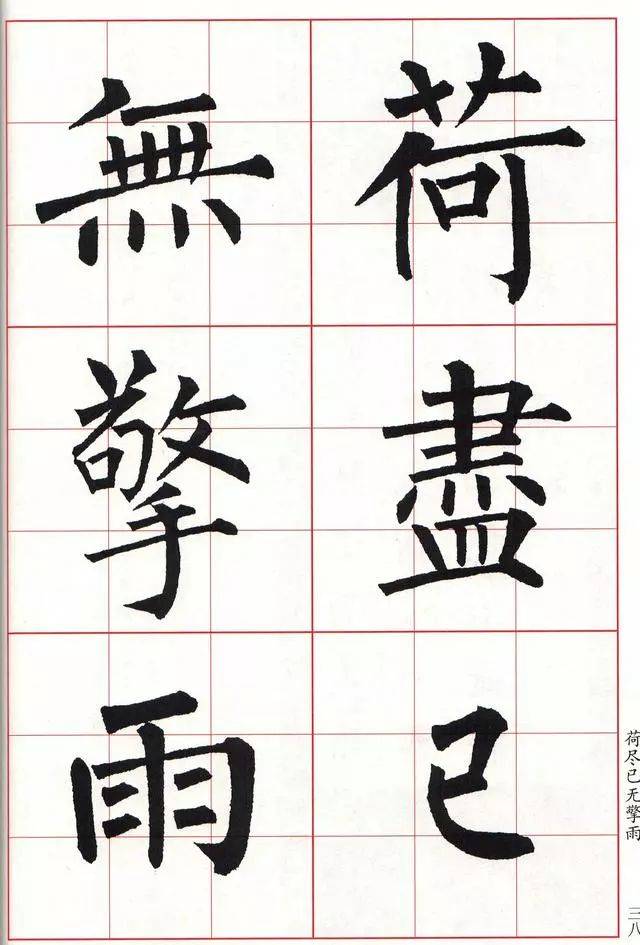 荷盡已
無擎雨
荷尽已无擎雨
三八